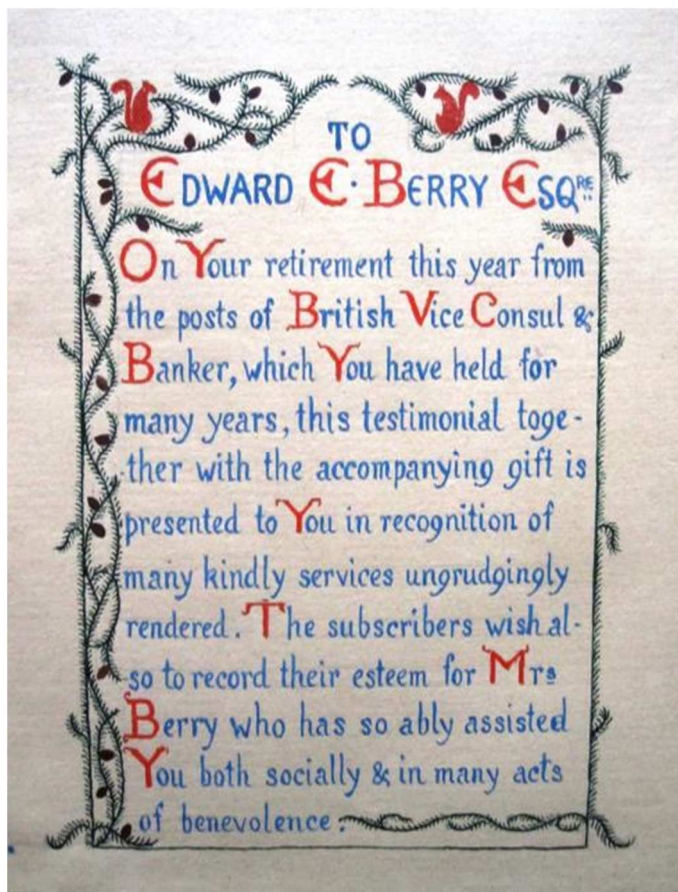 TO
EDWARD E·BERRY ESQRE
On Your retirement this year from
the posts of British Vice Consul &
Banker, which You have held for
many years, this testimonial toge-
ther with the accompanying gift is
presented to You in recognition of
many kindly services ungrudgingly
rendered. The subscribers wish al-
so to record their esteem for Mrs
Berry who has so ably assisted
You both socially & in many acts
of benevolence: